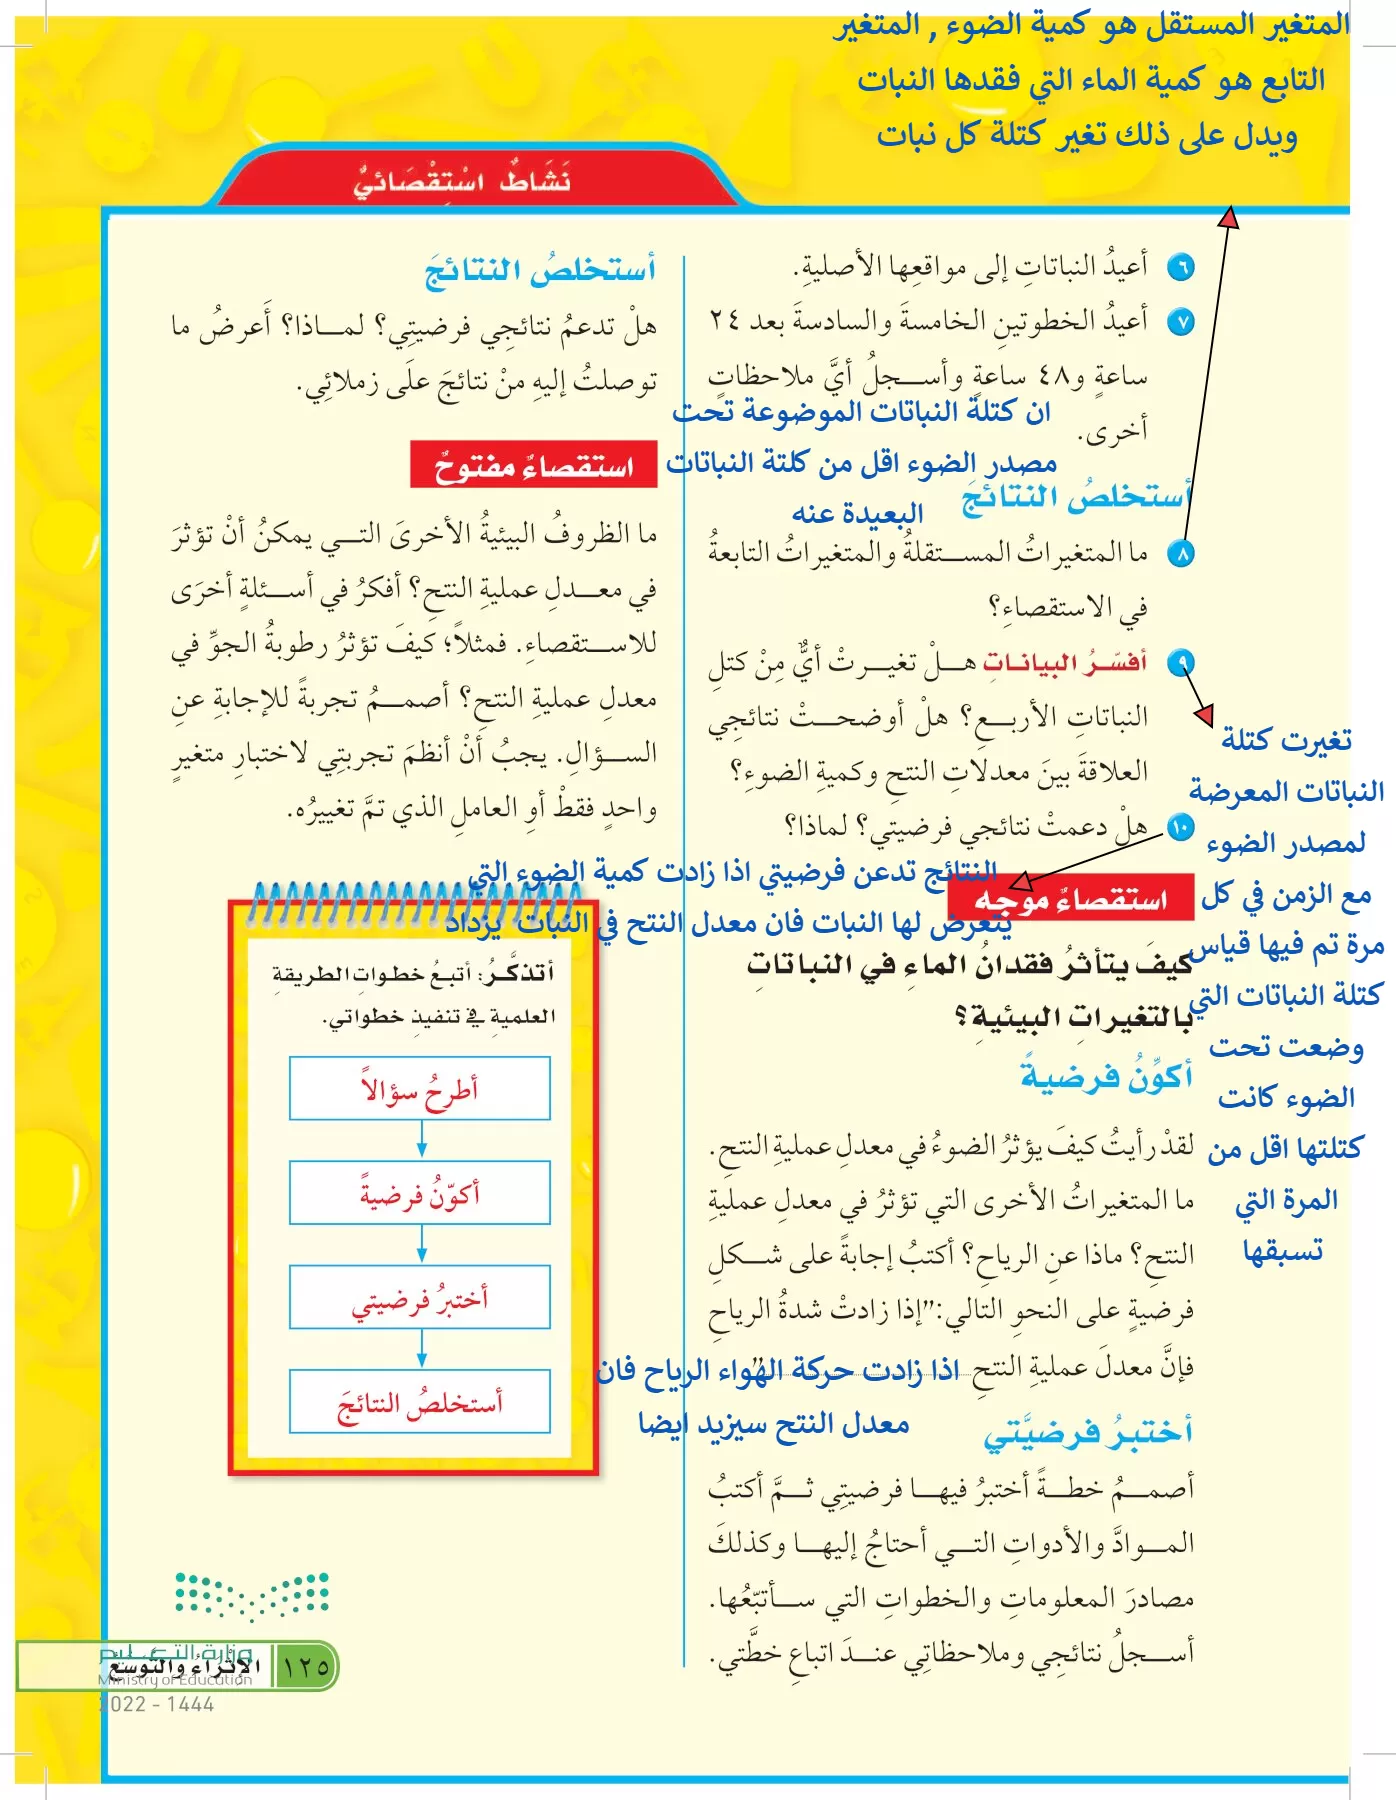 المتغير المستقل هو كمية الضوء , المتغير
التابع هو كمية الماء التي فقدها النبات
ويدل على ذلك تغير كتلة كل نبات
نَشَاطٌ اسْتِقْصَائيٌّ
٦ أعيدُ النباتاتِ إلى مواقعِها الأصليةِ.
٧ أعيدُ الخطوتينِ الخامسةَ والسادسةَ بعد ٢٤
ساعةٍ و٤٨ ساعةٍ وأســجلُ أيَّ ملاحظاتٍ
أخرى.
ان كتلة النباتات الموضوعة تحت
مصدر الضوء اقل من كلتة النباتات
البعيدة عنه
أستخلصُ النتائجَ
٨ ما المتغيراتُ المســتقلةُ والمتغيراتُ التابعةُ
في الاستقصاءِ؟
٩ أفسّرُ البياناتِ هــلْ تغيــرتْ أيٌّ مِنْ كتلِ
النباتاتِ الأربــعِ؟ هلْ أوضحــتْ نتائجي
العلاقةَ بينَ معدلاتِ النتحِ وكميةِ الضوءِ؟
١٠ هلْ دعمتْ نتائجي فرضيتي؟ لماذا؟
تغيرت كتلة
النباتات المعرضة
لمصدر الضوء
مع الزمن في كل
مرة تم فيها قياس
كتلة النباتات التي
وضعت تحت
الضوء كانت
كتلتها اقل من
المرة التي
تسبقها
النتائج تدعن فرضيتي اذا زادت كمية الضوء التي
يتعرض لها النبات فان معدل النتح في النبات يزداد
استقصاءٌ موجه
كيفَ يتأثرُ فقدانُ الماءِ في النباتاتِ
بالتغيراتِ البيئيةِ؟
أكوِّنُ فرضيةً
لقدْ رأيتُ كيفَ يؤثرُ الضوءُ في معدلِ عمليةِ النتحِ.
ما المتغيراتُ الأخرى التي تؤثرُ في معدلِ عمليةِ
النتحِ؟ ماذا عنِ الرياحِ؟ أكتبُ إجابةً على شــكلِ
فرضيةٍ على النحوِ التالي:"إذا زادتْ شدةُ الرياحِ
فإنَّ معدلَ عمليةِ النتحِ ........"
اذا زادت حركة الهواء الرياح فان
معدل النتح سيزيد ايضا
أختبرُ فرضيَّتي
أصمــمُ خطــةً أختبرُ فيهــا فرضيتِي ثــمَّ أكتبُ
المــوادَّ والأدواتِ التــي أحتاجُ إليهــا وكذلكَ
مصادرَ المعلوماتِ والخطواتِ التي ســأتبّعُها.
أســجلُ نتائجِي وملاحظاتِي عنــدَ اتباعِ خطَّتي.
أستخلصُ النتائجَ
هلْ تدعمُ نتائجِي فرضيتِي؟ لمــاذا؟ أَعرضُ ما
توصلتُ إليهِ منْ نتائجَ علَى زملائِي.
استقصاءٌ مفتوحٌ
ما الظروفُ البيئيةُ الأخرىَ التــي يمكنُ أنْ تؤثرَ
في معــدلِ عمليةِ النتحِ؟ أفكرُ في أســئلةٍ أخرَى
للاســتقصاءِ. فمثلاً؛ كيفَ تؤثرُ رطوبةُ الجوِّ في
معدلِ عمليةِ النتحِ؟ أصمــمُ تجربةً للإجابةِ عنِ
الســؤالِ. يجبُ أنْ أنظمَ تجربتِي لاختبارِ متغيرٍ
واحدٍ فقطْ أوِ العاملِ الذي تمَّ تغييرُه.
أتذكَّرُ: أتبعُ خطواتِ الطريقةِ
العلميةِ في تنفيذِ خطواتي.
أطرحُ سؤالاً
أكوّنُ فرضيةً
أختبرُ فرضيتي
أستخلصُ النتائجَ
وزارة التعليم
Ministry of Education
2022 - 1444
الإثْراءُ والتَّوسُّعُ ١٢٥